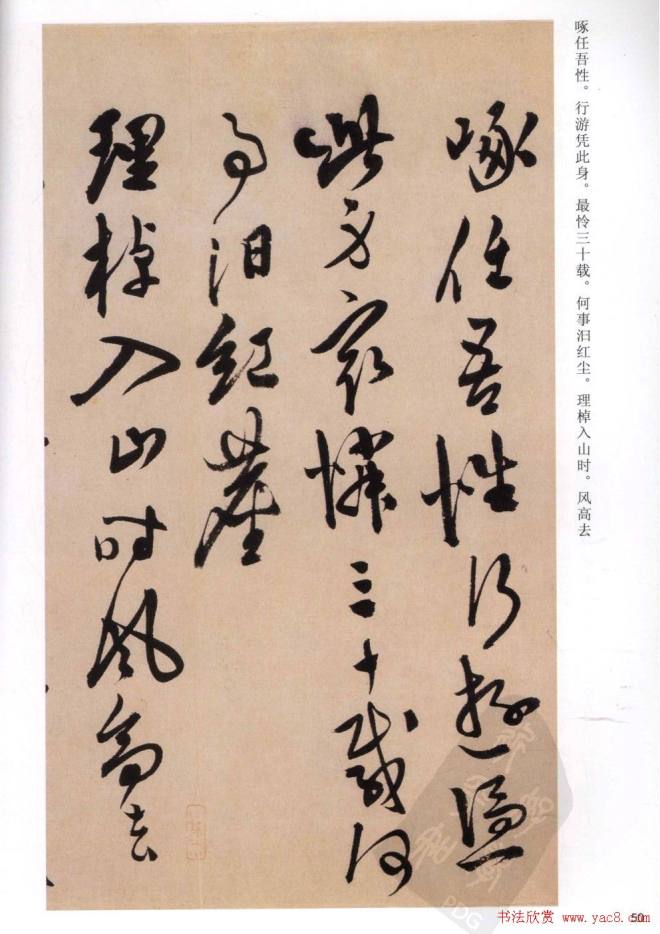 啄任吾性。行游凭此身。最怜三十载。何事汩红尘。理棹入山时。风高去
啄任吾性行游凭
此身最憐三十載何
事汨紅塵
理棹入山时风高去
PDG
50
书法欣赏 www.yac8.com